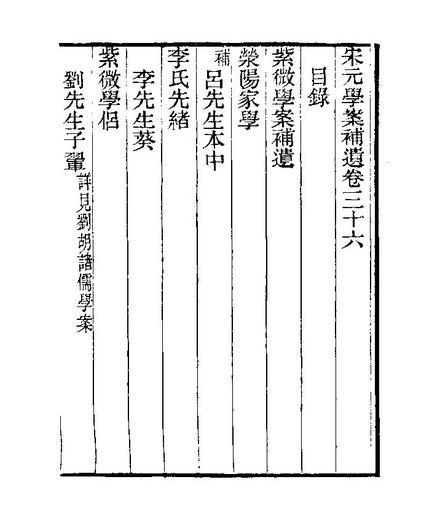 宋元學案補遺卷三十六
目錄
紫微學案補遺
滎陽家學
補呂先生本中
李氏先緒
李先生葵
紫微學侶
劉先生子翬詳見劉胡諸儒學案